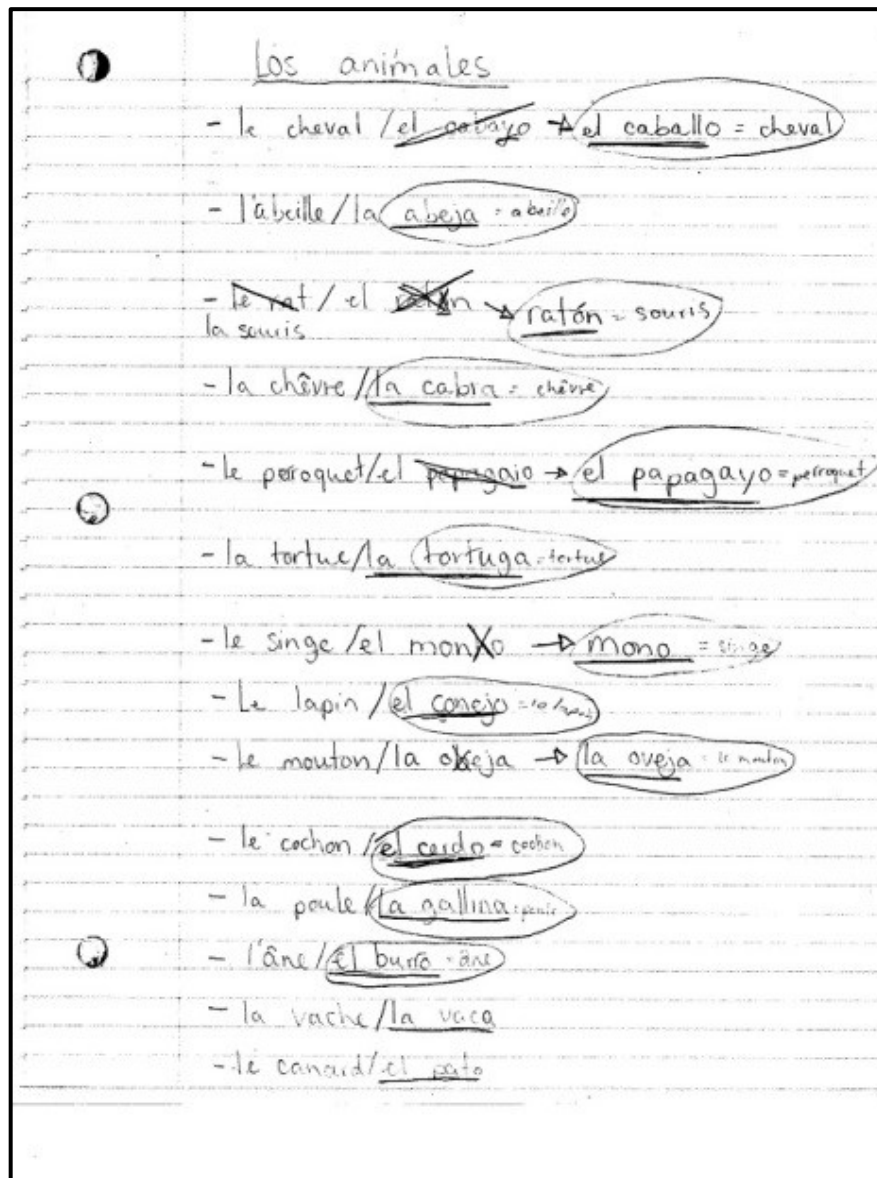 Los animales
- le cheval / el cabayo → el caballo = cheval
- l'abeille / la abeja = abeille
- le rat / el → ratón = souris
la souris
- la chêvre / la cabra = chêvre
- le perroquet / el papagaio → el papagayo = perroquet
- la tortue / la tortuga = tortue
- le singe / el monXo → mono = singe
- Le lapin / el conejo = le lapin
- le mouton / la oveja → la oveja = le mouton
- le cochon / el cerdo = cochon
- la poule / la gallina = poule
- l'âne / el burro = âne
- la vache / la vaca
- le canard / el pato